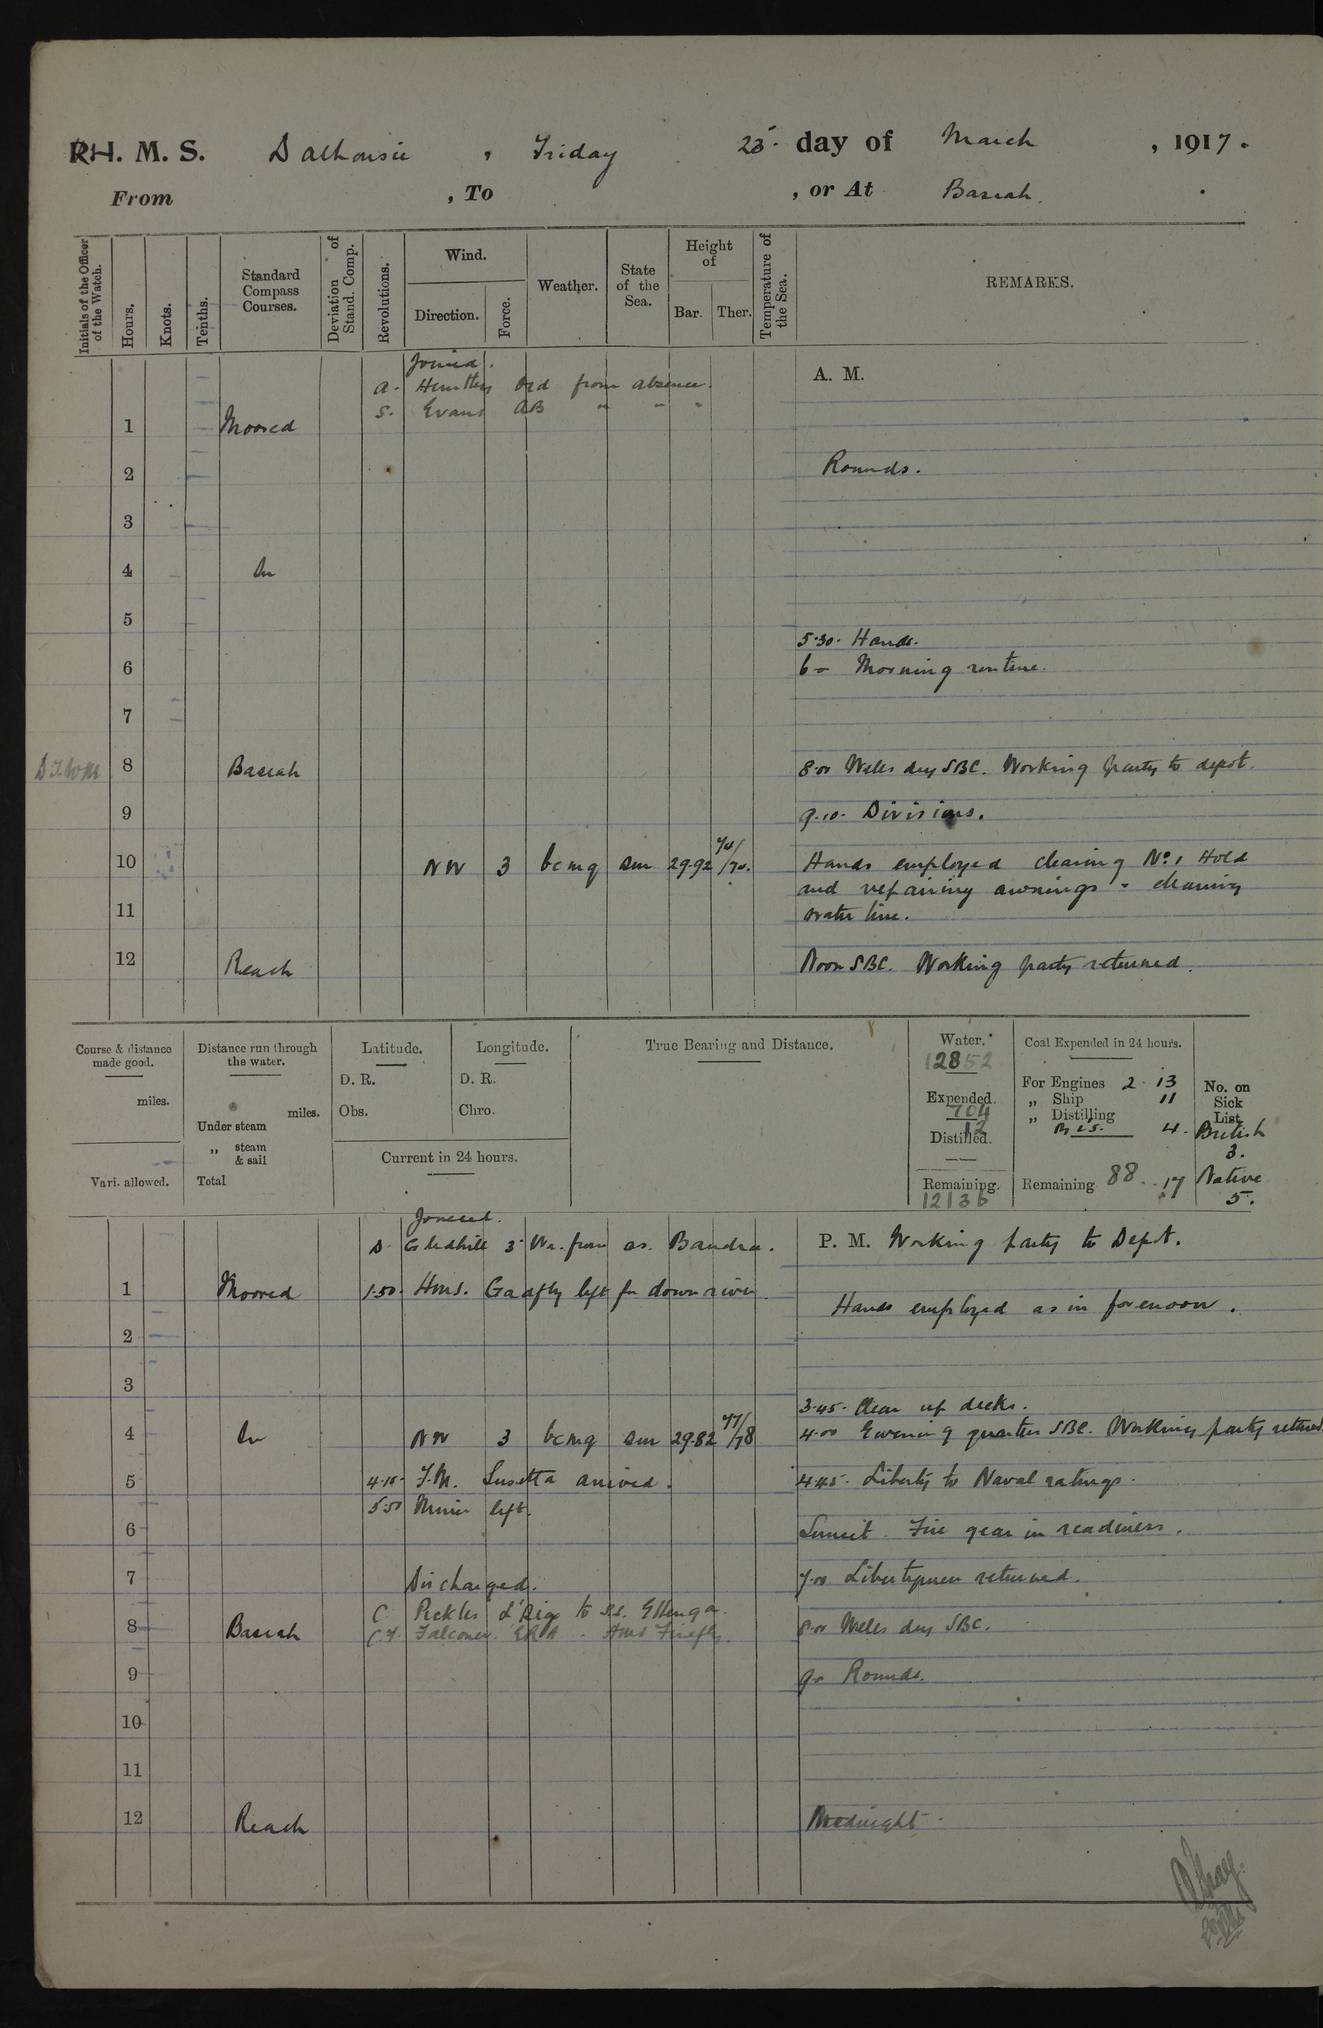 R.H. M. S. Dalhousie, Friday 23. day of March, 1917.
From , To , or At Basrah.
Initials of the Officer of the Watch.
Hours.
Knots.
Tenths.
Standard Compass Courses.
Deviation of Stand. Comp.
Revolutions.
Wind.
Direction.
Force.
Weather.
State of the Sea.
Height of
Bar.
Ther.
Temperature of the Sea.
REMARKS.
Joined.
A. Ord from absence.
S. Evans AB " " "
A. M.
1 Moored
2 Rounds.
3
4 In
5
5.30. Hands.
6 6 - Morning routine.
7
8 Basrah 8.00 Working party to depot.
9 9.10. Divisions.
10 NW 3 bcmq sm 29.92 74/74. Hands employed clearing No. 1 Hold
and repairing awnings - cleaning
11 water line.
12 Reach Noon SBC. Working party returned.
Course & distance made good.
miles.
Vari. allowed.
Distance run through the water.
miles.
Under steam
„ steam & sail
Total
Latitude.
D. R.
Obs.
Longitude.
D. R.
Chro.
Current in 24 hours.
True Bearing and Distance.
Water.
12852
Expended.
704
12
Distilled.
Remaining.
12136
Coal Expended in 24 hours.
For Engines 2 . 13
„ Ship 11
„ Distilling
4.
Remaining 88 . 17
No. on Sick List.
British
3.
Native
5.
Joined.
D. Gledhill 3 Wr. from ss. Bandra.
P. M. Working party to Depot.
1 Moored 1.50. H.M.S. Gadfly left for down river.
Hands employed as in forenoon.
2
3
3.45. Clear up decks.
4 In NW 3 bcmq sm 29.82 77/78 4.00 Evening quarters SBC. Working party returned
5 4.15. F.M. arrived. 4.45. Liberty to Naval ratings.
5.50 left.
6 Sunset Fire gear in readiness.
7 Discharged. 7.00 Libertymen returned.
C Pickles L'Sig to s.s. Ellenga.
8 Basrah Falconer ERA - HMS Firefly. 8.00 SBC.
9 9.0 Rounds.
10
11
12 Reach Midnight.